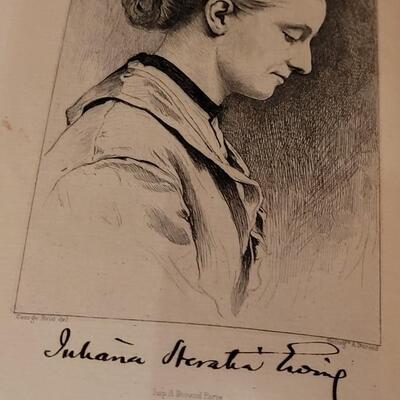 George Reid del
Juliana Horatia Ewing
Imp A Durand Paris